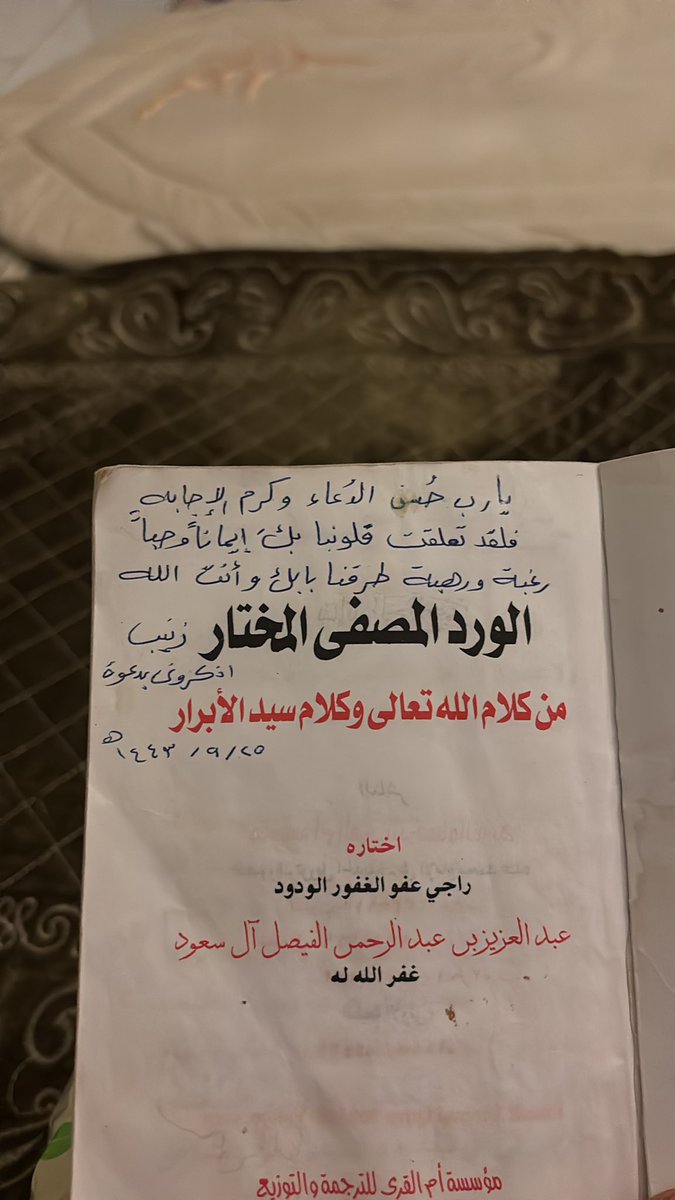 يارب حُسن الدُعاء وكرم الإجابه
فلقد تعلقت قلوبنا بكَ إيماناً وحباً
رغبة ورهبة طرقنا بابك وأنت الله
الورد المصفى المختار
زينب
اذكروني بدعوة
من كلام الله تعالى وكلام سيد الأبرار
٢٥/ ٩/ ١٤٤٣هـ
اختاره
راجي عفو الغفور الودود
عبد العزيز بن عبد الرحمن الفيصل آل سعود
غفر الله له
مؤسسة أم القرى للترجمة والتوزيع